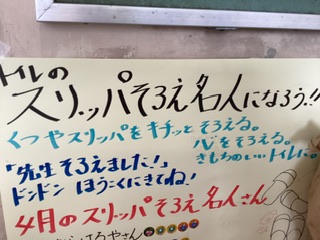 トイレの
スリッパそろえ名人になろう!!
くつやスリッパをキチッとそろえる。
心をそろえる。
きもちのいいトイレに。
「先生そろえました!」
ドンドンほうこくにきてね!
4月のスリッパそろえ名人さん